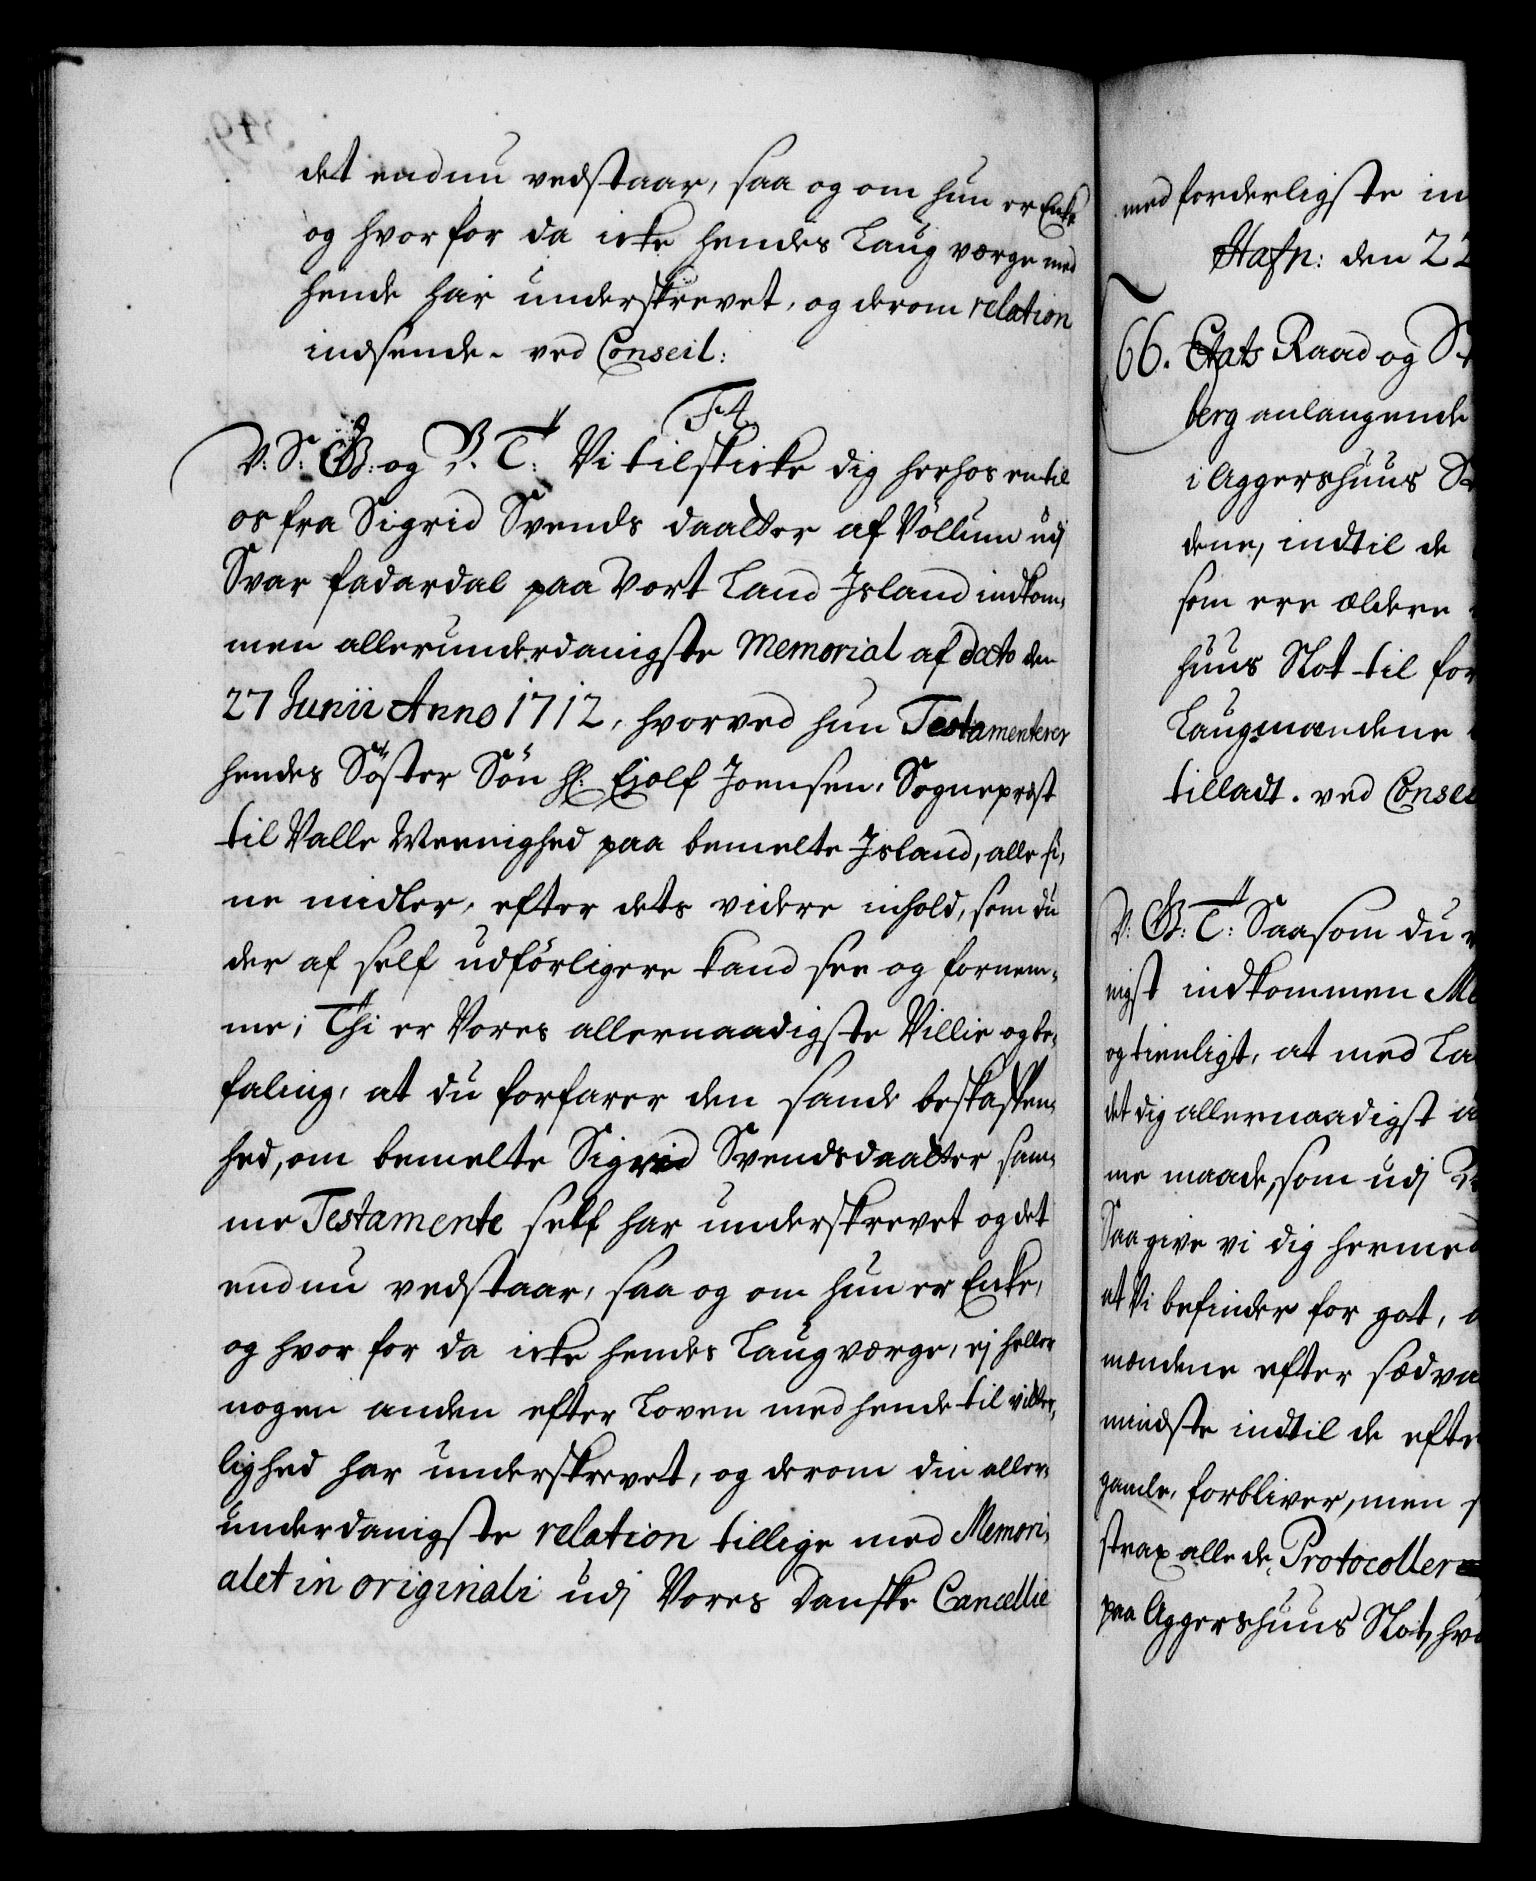 det endnu vedstaar, saa og om hun er Enke
og hvor for da icke hendes Laug værge med
hende har underskrevet, og derom relation
indsende. ved Conseil:
F4.
V: S: G: og B. T: Vi tilskicke dig herhos en til
os fra Sigrid Svends daatter af Vollum udj
Svar fadardal paa Vort Land Jsland indkom-
men allerunderdanigste Memorial af dato den
27 Junii Anno 1712, hvorved hun Testamenterer
hendes Söster Sön H: Ejolf Joensen, Sognepræst
til Valle Meenighed paa bemelte Jsland, alle si-
ne midler, efter dets videre inhold, som du
der af self udförligere kand see og fornem-
me; Thi er Vores allernaadigste Villie og be-
faling, at du forfarer den sande beskaffen-
hed, om bemelte Sigrid Svendsdaatter sam-
me Testamente self har underskrevet og det
endnu vedstaar, saa og om hun er Enke,
og hvor for da icke hendes Laugværge, ej heller
nogen anden efter Loven med hende til vitter-
lighed har underskrevet, og derom din aller-
underdanigste relation tillige med Memori-
alet in originali udj Vores Danske Cancellie
med forderligste in
Hafn: den 22
66. Etats Raad og
berg anlangende
i Aggershuus
dene, indtil de
som ere ældere
huus Slot til for
Laugmændene
tilladt. ved Consei
V: G: T: Saasom du
nigst indkommen Me
og tienligt, at med La
det dig allernaadigst
me maade, som udj
Saa give vi dig hermed
at Vi befinder for got,
mændene efter sædva
mindste indtil de efte
gamle, forbliver, men
strax alle de Protocoller
paa Aggershuus Slot, hvo